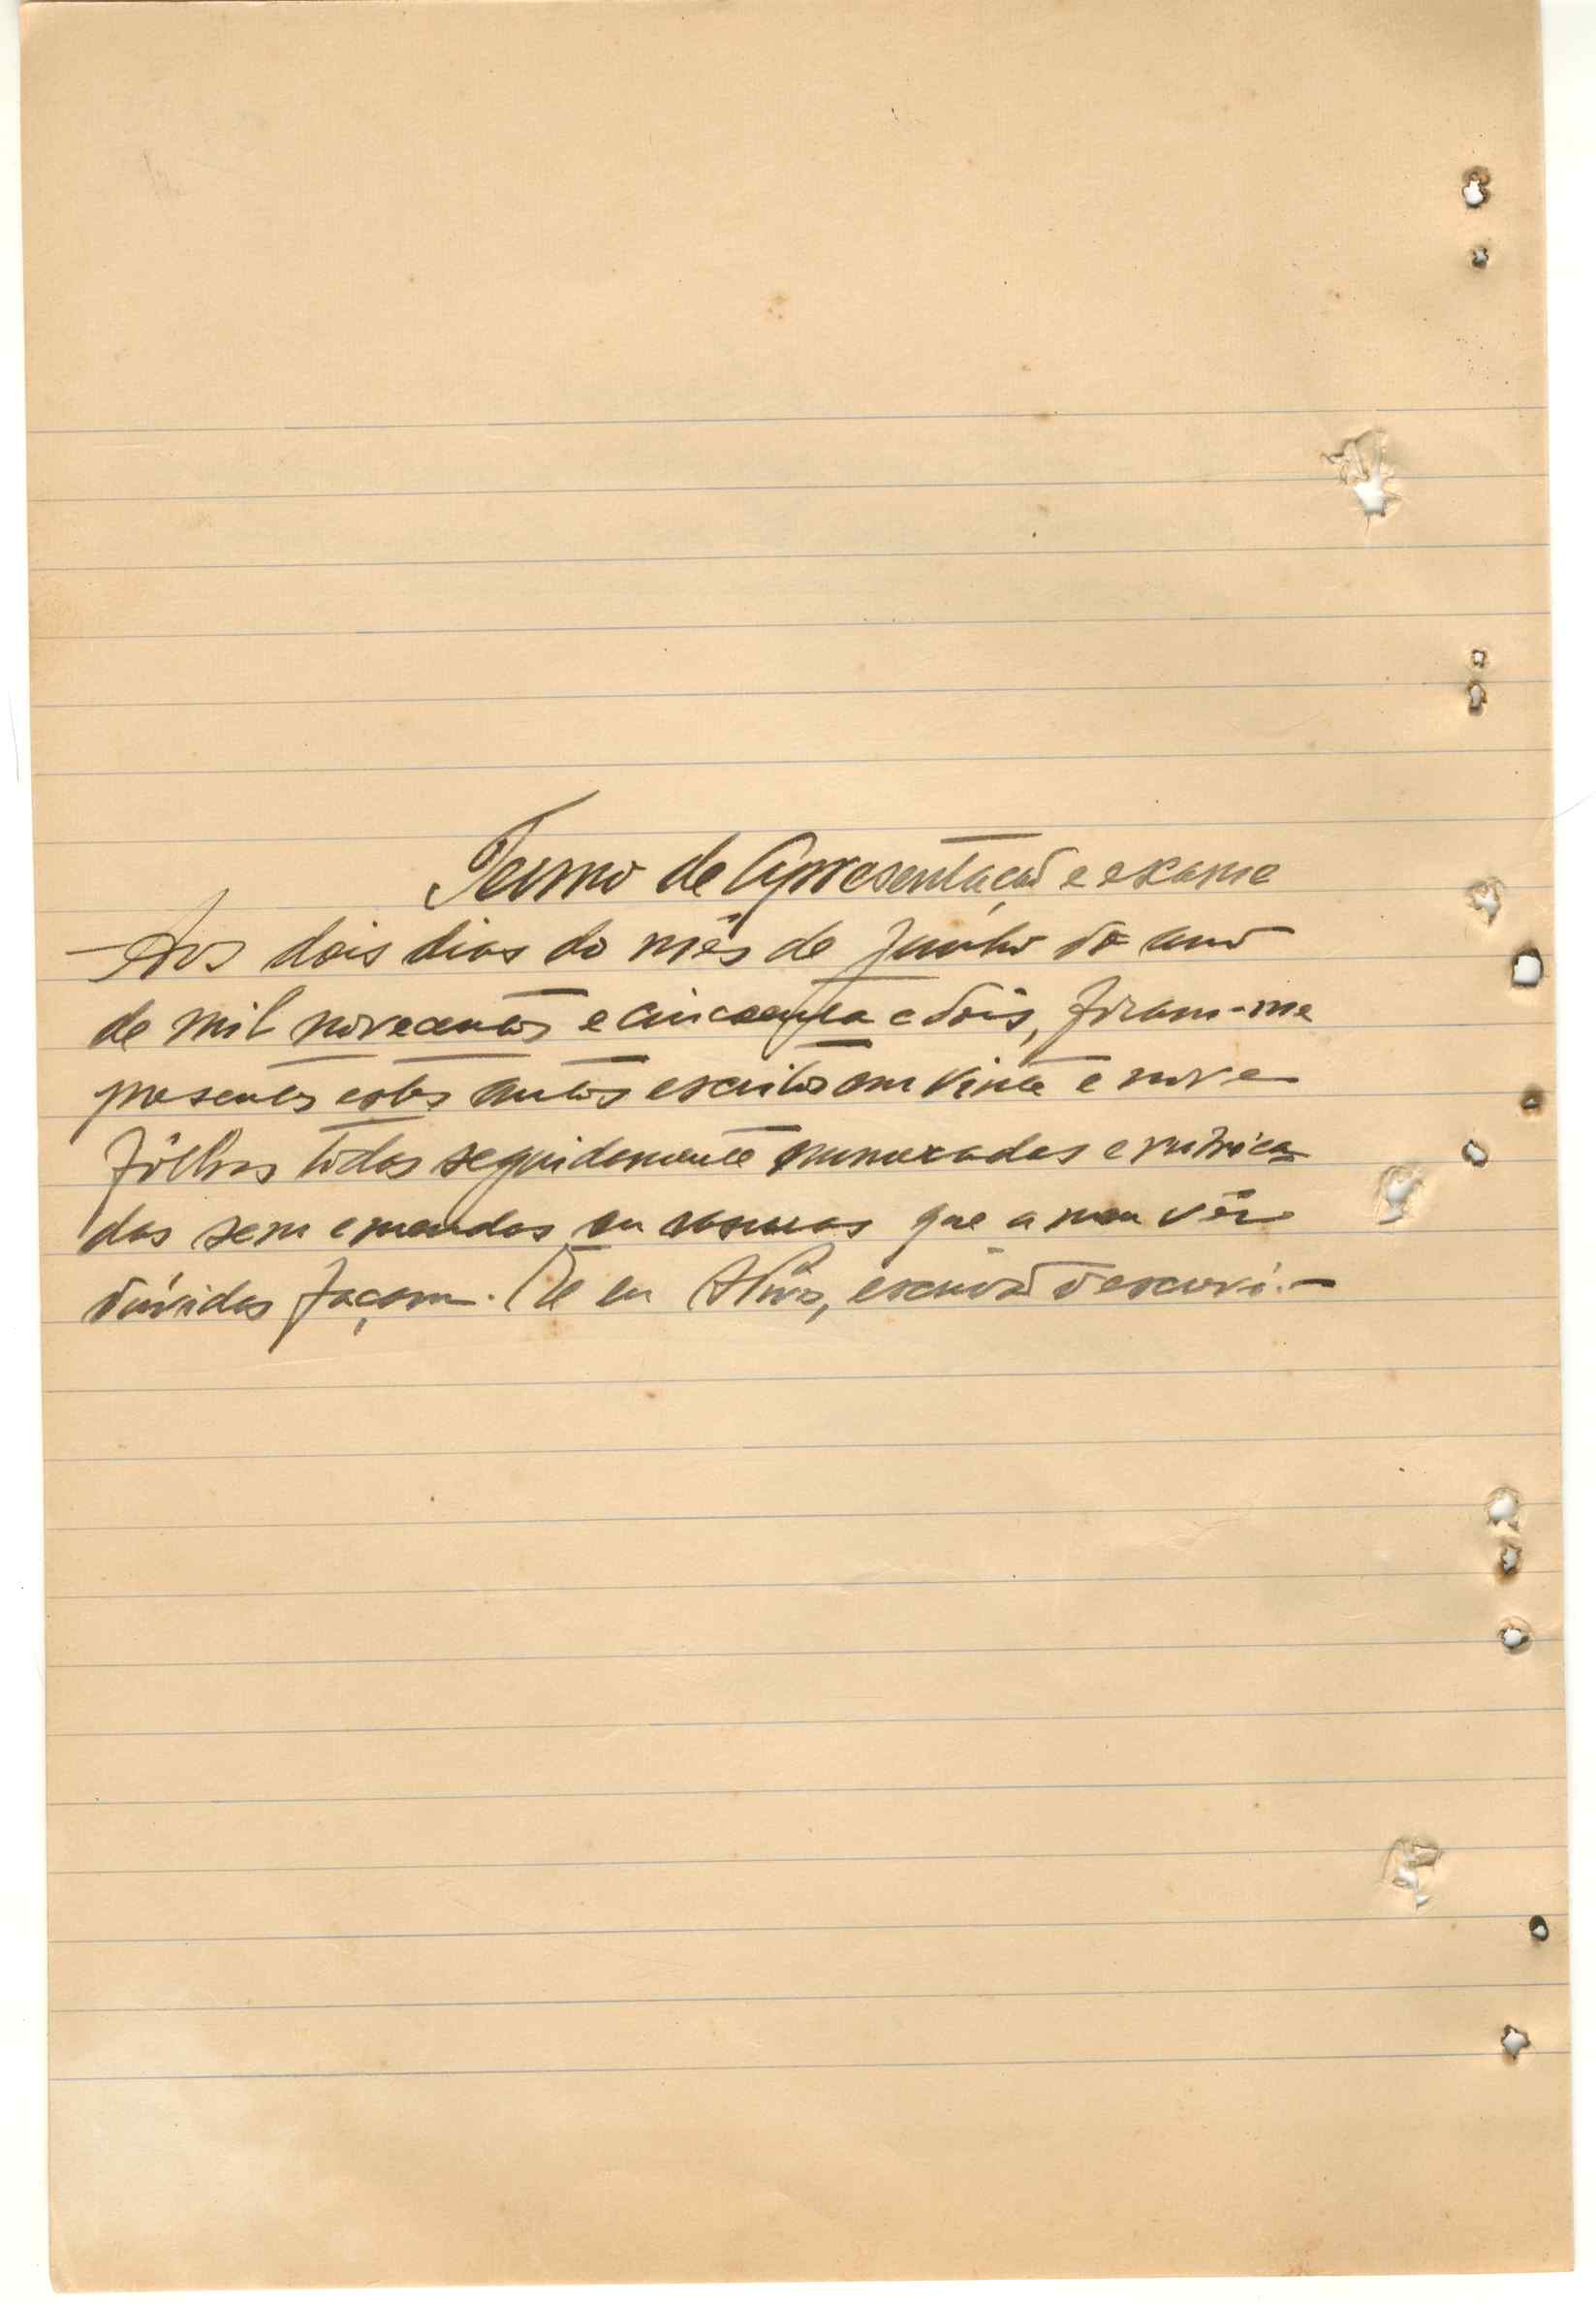 Termo de Apresentação e exame
Aos dois dias do mês de Junho do ano
de mil novecentos e cincoenta e dois, fôram-me
presentes estes autos escritos em vinte e nove
fôlhas todas seguidamente numeradas e rubrica
das sem emendas ou rasuras que a meu vêr
dúvidas façam. De eu escrivão o escreví.-